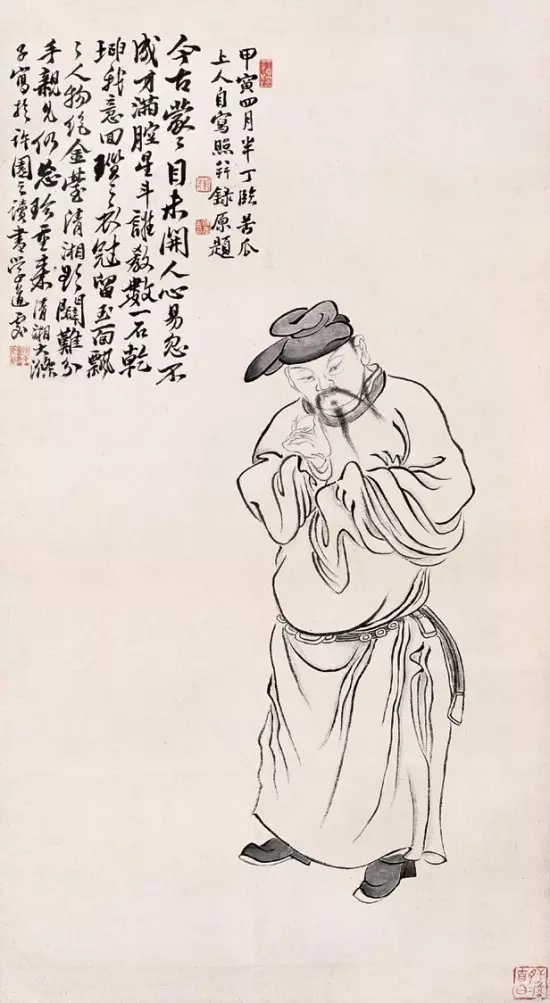 甲寅四月半丁臨苦瓜
上人自寫照并錄原題
今古蒙々目未開人心易忽不
成才滿腔星斗誰教數一石乾
我意回衣冠留玉面飄
々人物金清湘難分
手親見仍珍重來清湘大滌
子寫於許園之讀書學道處